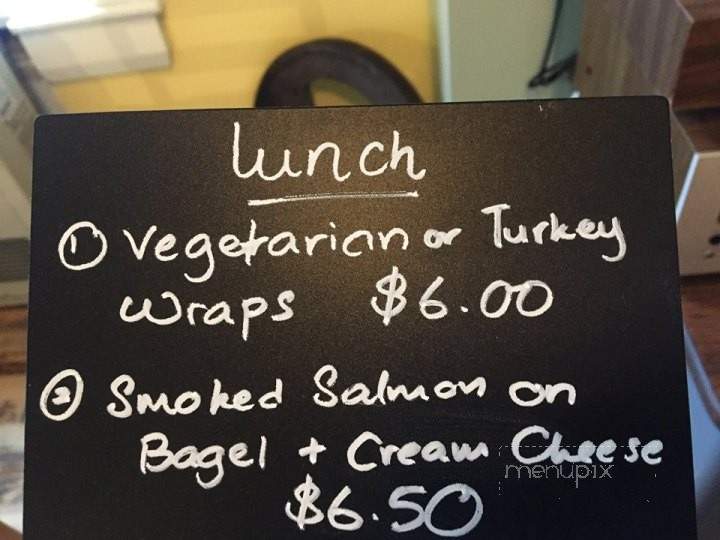 lunch
① Vegetarian or Turkey
Wraps $6.00
② Smoked Salmon on
Bagel + Cream Cheese
menupix
$6.50